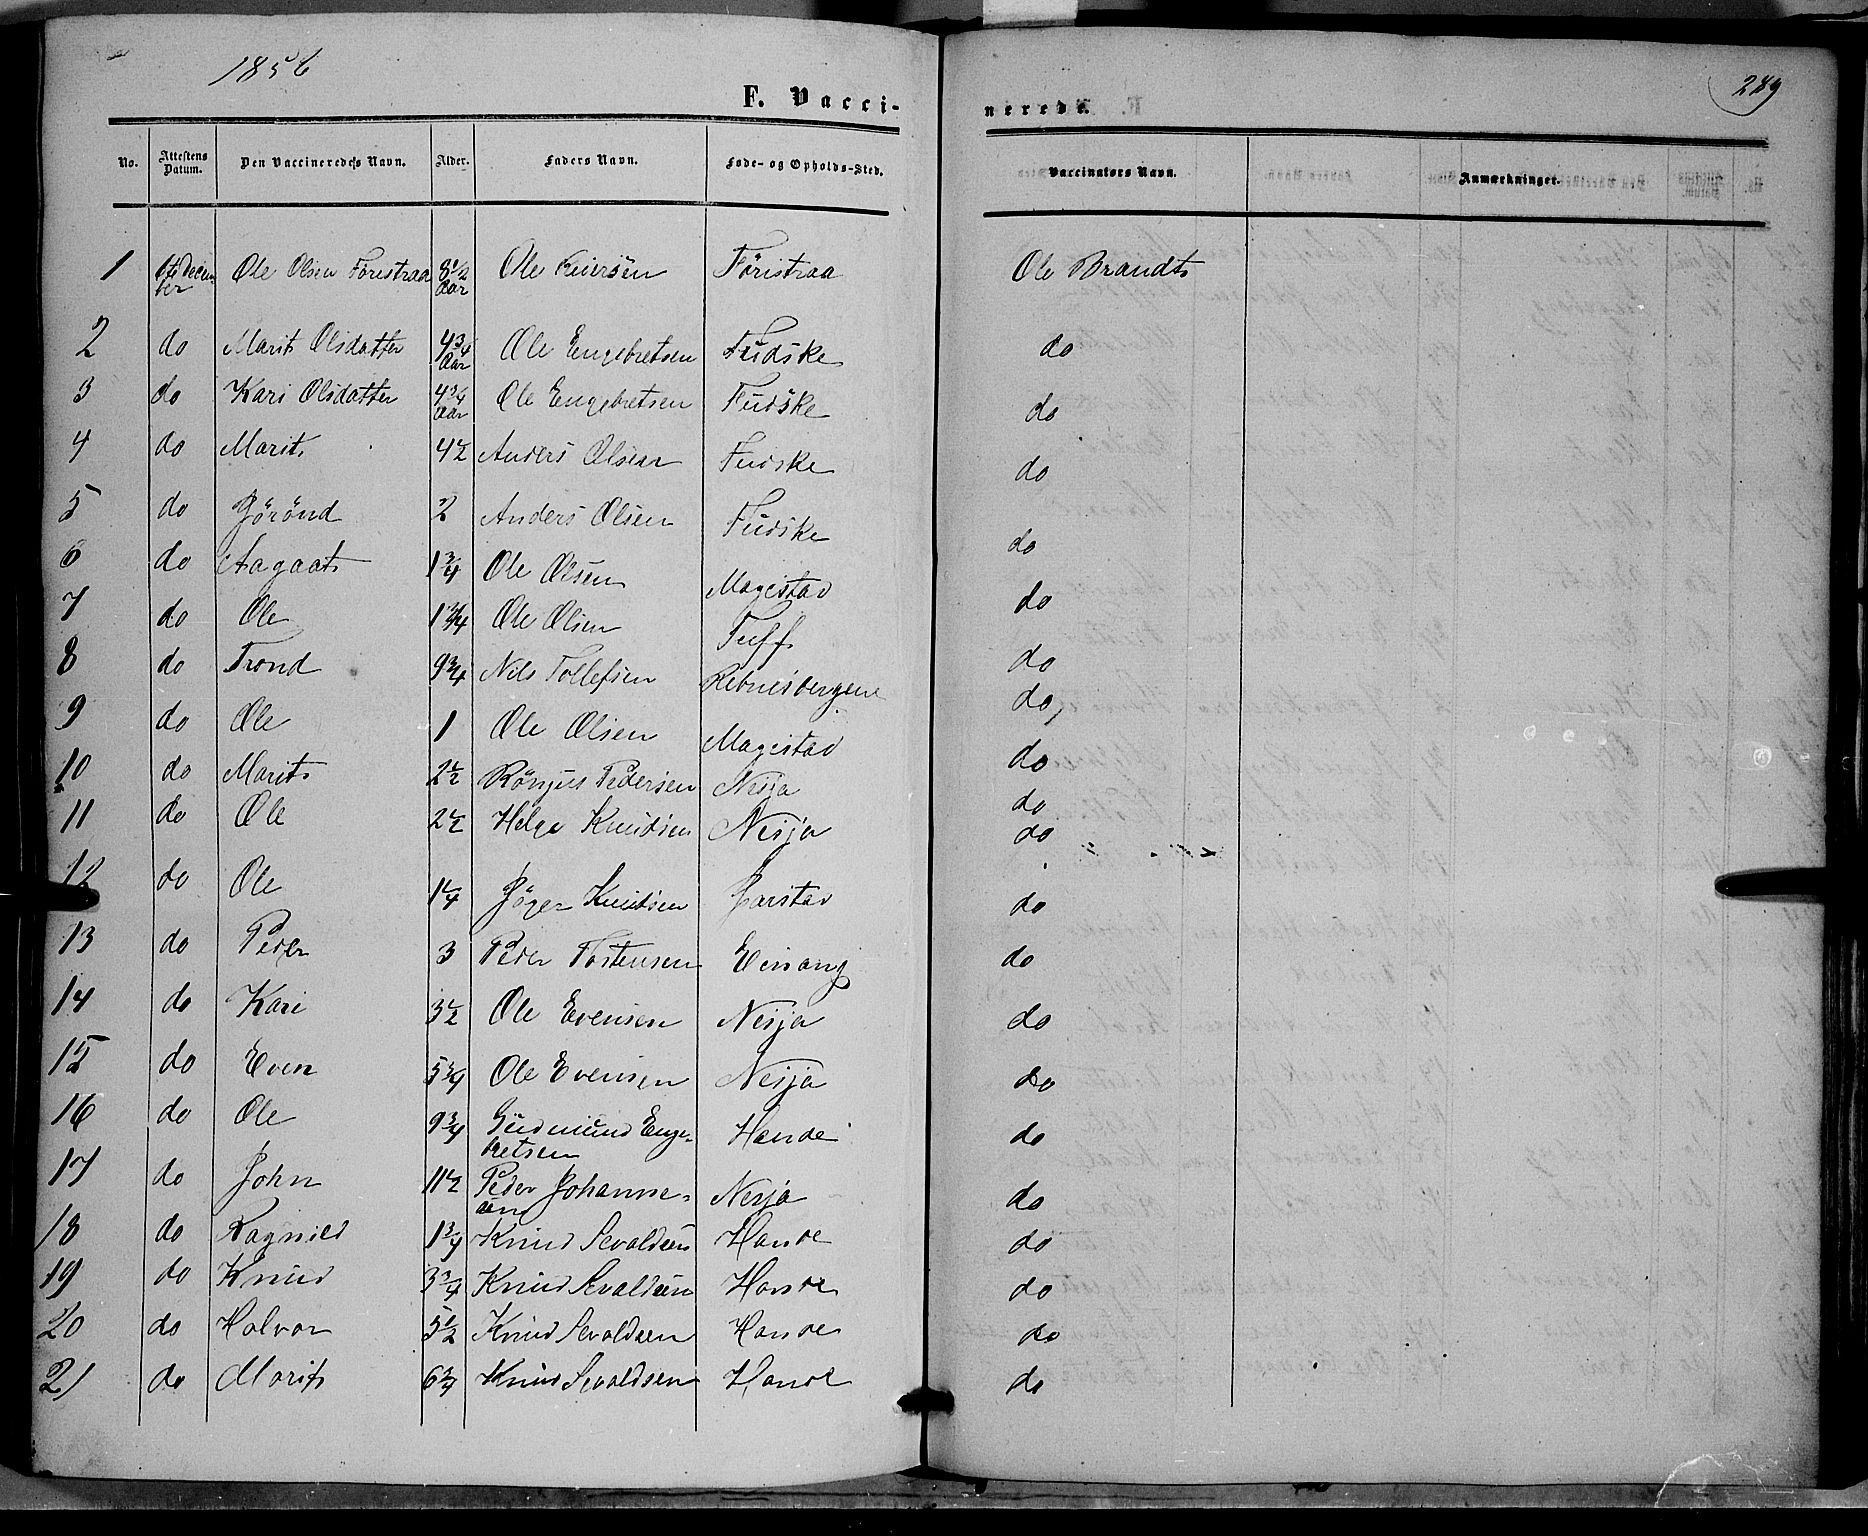 1856
289
F. Vacci-
nerede.
No. Attestens Datum. Den Vaccineredes Navn. Alder. Faders Navn. Føde- og Opholds-Sted. Vaccinators Navn. Anmærkninger.
1 Ole Olsen Föristraa 8 1/2 Aar Ole Föristraa Ole Brandt
2 do Marit Olsdatter 4 3/4 Aar Ole Engebretsen Fudske do
3 do Kari Olsdatter 4 3/4 Aar Ole Engebretsen Fudske do
4 do Marit 4 1/2 Anders Olsen Fudske do
5 do Jörönd 2 Anders Olsen Fudske do
6 do Aagaat 1 3/4 Ole Olsen Magistad do
7 do Ole 1 3/4 Ole Olsen Tuff do
8 do Trond 9 3/4 Nils Tollefsen do
9 do Ole 1 Ole Olsen Magistad do
10 do Marit 2 1/2 Pedersen Nesja do
11 do Ole 2 1/2 Helge Knudsen Nesja do
12 do Ole 1 1/4 Jöger Knudsen Garstad do
13 do Peder 3 Peder Tostensen Einang do
14 do Kari 3 1/2 Ole Evensen Nesja do
15 do Even 5 3/4 Ole Evensen Nesja do
16 do Ole 9 3/4 Gudmund Enge-
bretsen Hande do
17 do John 11 1/2 Peder Johanne-
sen Nesja do
18 do Ragnild 1 3/4 Knud Sevaldsen Hande do
19 do Knud 3 3/4 Knud Sevaldsen Hande do
20 do Halvor 5 1/2 Knud Sevaldsen Hande do
21 do Marit 6 3/4 Knud Sevaldsen Hande do